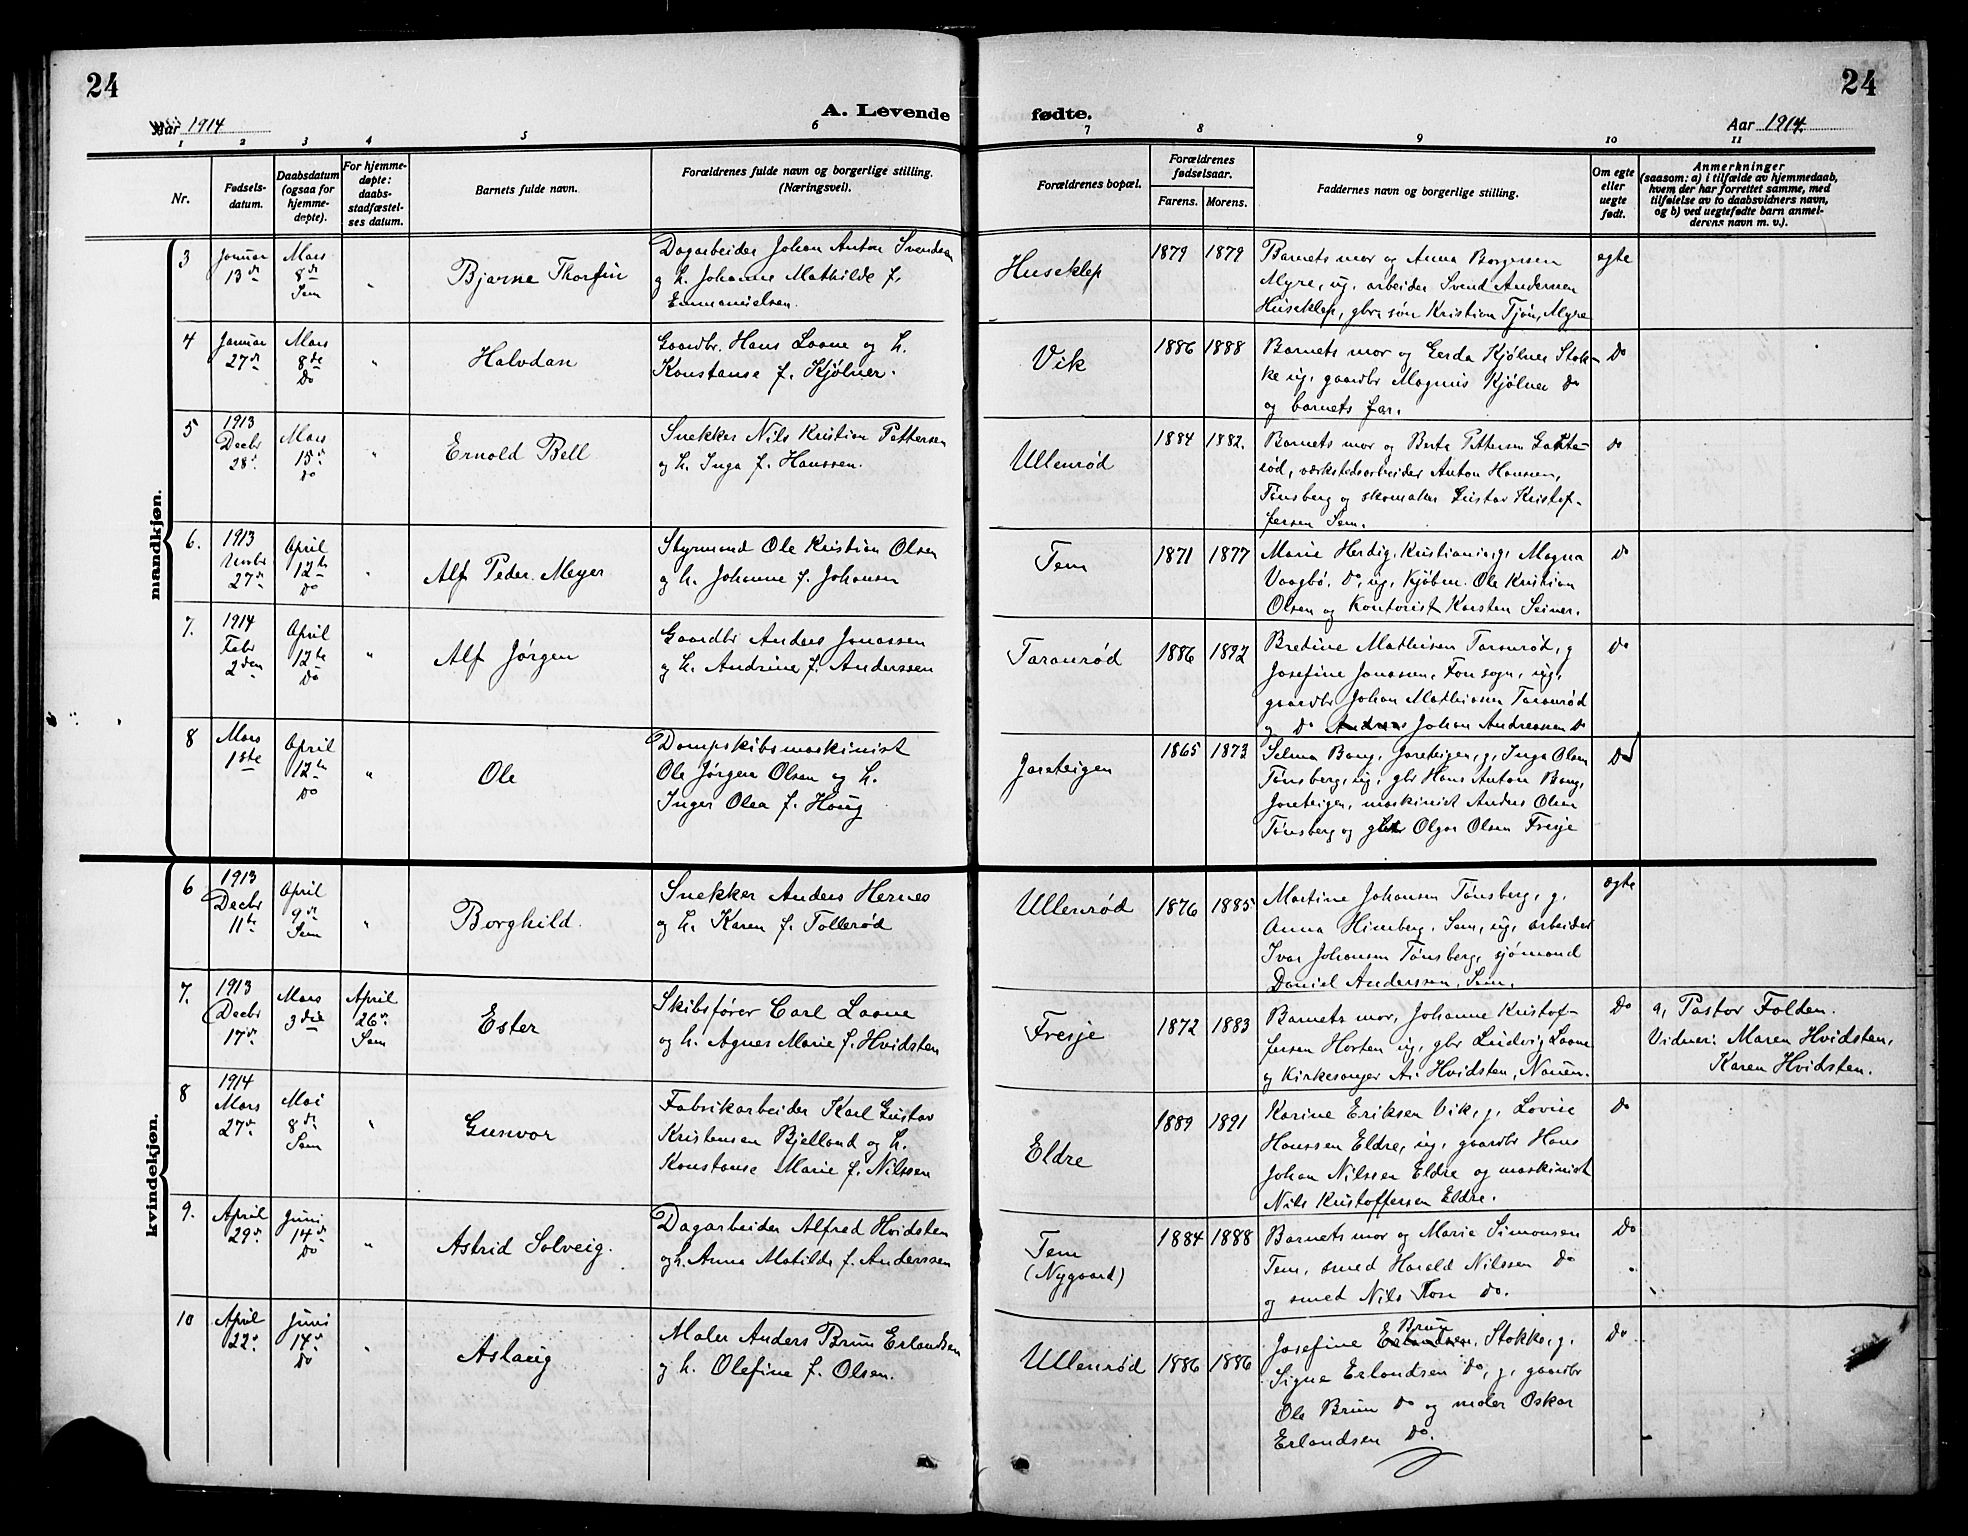 24
Aar 1914
A. Levende
1 2 3 4 5 6
Nr.
Fødsels-
datum.
Daabsdatum
(ogsaa for
hjemme-
døpte).
For hjemme-
døpte:
daabs-
stadfæstel-
ses datum.
Barnets fulde navn.
Forældrenes fulde navn og borgerlige stilling.
(Næringsvei).
mandkjøn.
3
Januar
13de
Mars
8de
Sem
"
Bjarne Thorfin
Dagarbeider Johan Anton Svendsen
og h. Johanne Mathilde f.
Emmanuelsen.
4
Januar
27de
Mars
8de
Do
"
Halvdan
Gaardbr. Hans Laane og h.
Konstanse f. Kjølner.
5
1913
Decbr
28de
Mars
15de
Do
"
Ernold Bell
Snekker Nils Kristian Pettersen
og h. Inga f. Hanssen.
6.
1913
Novbr
27de
April
12te
Do
"
Alf Peder Meyer
Styrmand Ole Kristian Olsen
og h. Johanne f. Johansen
7.
1914
Febr
2den
April
12te
Do
"
Alf Jørgen
Gaardbr Anders Jonassen
og h. Andrine f. Anderssen
8
Mars
1ste
April
12te
Do
"
Ole
Dampskibsmaskinist
Ole Jørgen Olsen og h.
Inger Olea f. Haug
kvindekjøn.
6
1913
Decbr
11te
April
9de
Sem
"
Borghild.
Snekker Anders Hernes
og h. Karen f. Tollerød
7.
1913
Decbr
17de
Mars
3die
April
26de
Sem
Ester
Skibsfører Carl Laane
og h. Agnes Marie f. Hvidsten
8
1914
Mars
27de
Mai
8de
Sem
"
Gunvor
Fabrikarbeider Karl Gustav
Kristensen Bjelland og h.
Konstanse Marie f. Nilssen
9.
April
29de
Juni
14de
Do
"
Astrid Solveig.
Dagarbeider Alfred Hvidsten
og h. Anna Matilde f. Anderssen
10
April
22de
Juni
14de
Do
"
Aslaug
Maler Anders Brun Erlandsen
og h. Olefine f. Olsen.
24
fødte.
Aar 1914.
7 8 9 10 11
Forældrenes bopæl.
Forældrenes
fødselsaar.
Farens. Morens.
Faddernes navn og borgerlige stilling.
Om egte
eller
uegte
født.
Anmerkninger
(saasom: a) i tilfælde av hjemmedaab,
hvem der har forrettet samme, med
tilføielse av to daabsvidners navn,
og b) ved uegtefødte barn anmel-
derens navn m. v.).
Huseklep
1879 1879
Barnets mor og Anna Borgersen
Myre, ug. arbeider Svend Andersen
Huseklep, gbr. søn Kristian Tjøn, Myre
egte
Vik
1886 1888
Barnets mor og Gerda Kjølner Stok-
ke ug. gaardbr Magnus Kjølner do
og barnets far.
Do
Ullenrød
1884 1882.
Barnets mor og Berta Pettersen
værkstedsarbeider Anton Hansen,
Tønsberg og skomaker Gustav Kristof-
fersen Sem.
do
Tem
1871 1877
Marie Herdig, Kristiania, g. Magna
Vaagbø, do, ug. Kjøbm. Ole Kristian
Olsen og Kontorist Karsten Seiner.
do
Taranrød
1886 1892
Bredine Mathisen Taranrød, g
Josefine Jonssen, Fon sogn, ug,
gaardbr Johan Mathiasen Taranrød
og do Johan Andreassen do
do
Jareteigen
1865 1873
Selma Bang, Jareteigen, g, Inga Olsen
Tønsberg, ug, gbr Hans Anton Bang,
Jareteigen, maskinist Anders Olsen
Tønsberg og gbr Olgar Olsen Fresje
Do
Ullenrød
1876 1885
Martine Johansen Tønsberg, g.
Anna Himberg, Sem, ug, arbeider
Ivar Johansen Tønsberg, sjømand
Daniel Anderssen, Sem.
egte
Fresje
1872 1883
Barnets mor, Johanne Kristof-
fersen Horten ug, gbr Ludvig Laane
og Kirkesanger A. Hvidsten,
Do
a, Pastor Folden.
Vidner: Maren Hvidsten,
Karen Hvidsten.
Eldre
1889 1891
Karine Eriksen Vik, g, Lovise
Hanssen Eldre, ug, gaardbr Hans
Johan Nilssen Eldre og maskinist
Nils Kristoffersen Eldre.
do
Tem
(Nygaard)
1884 1888
Barnets mor og Marie Simonsen
Tem, smed Harald Nilssen do
og smed Nils do.
Do
Ullenrød
1886 1886
Brun
Josefine Erlandsen, Stokke, g.
Signe Erlandsen do, g, gaardbr
Ole Brun do og maler Oskar
Erlandsen do.
Do